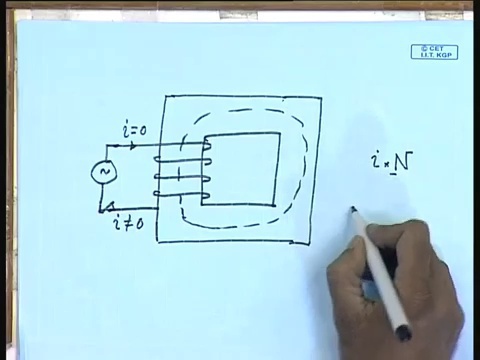 © CET
I.I.T. KGP
i=0
~
i≠0
i × N